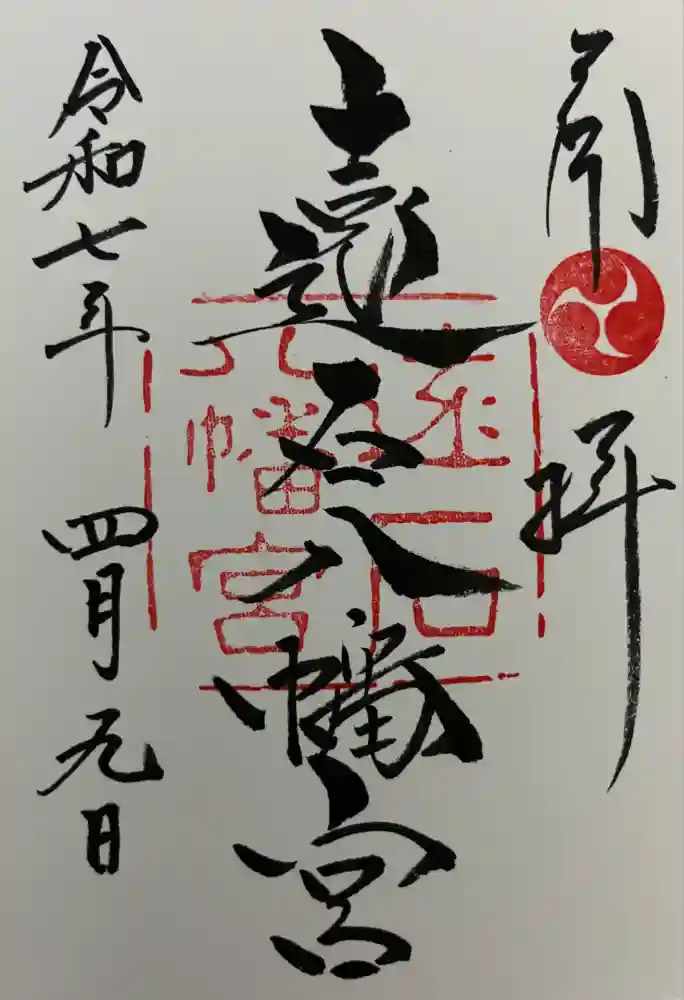 奉拝
遠石八幡宮
令和七年 四月九日
遠石
八幡宮